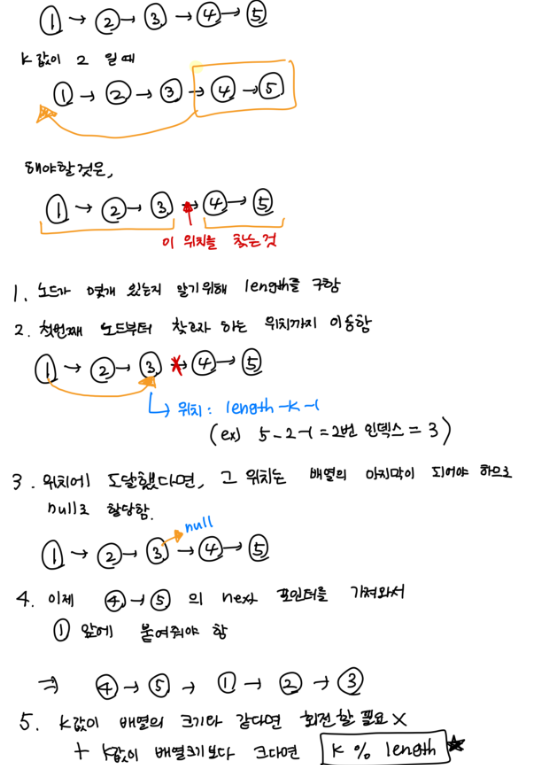 ① → ② → ③ → ④ → ⑤
K값이 2 일때
① → ② → ③ → ④ → ⑤
해야할것은,
① → ② → ③ → ④ → ⑤
이 위치를 찾는것
1. 노드가 몇개 있는지 알기위해 length를 구함
2. 첫번째 노드부터 찾고자 하는 위치까지 이동함
① → ② → ③ → ④ → ⑤
위치: length-K-1
(ex) 5-2-1=2번 인덱스 = 3)
3. 위치에 도달했다면, 그 위치는 배열의 마지막이 되어야 하므로
null로 할당함.
null
① → ② → ③ → ④ → ⑤
4. 이제 ④ → ⑤ 의 next 포인터를 가져와서
① 앞에 붙여줘야 함
⇒ ④ → ⑤ → ① → ② → ③
5. K값이 배열의 크기와 같다면 회전할 필요 X
+ K값이 배열크기보다 크다면 K % length ★